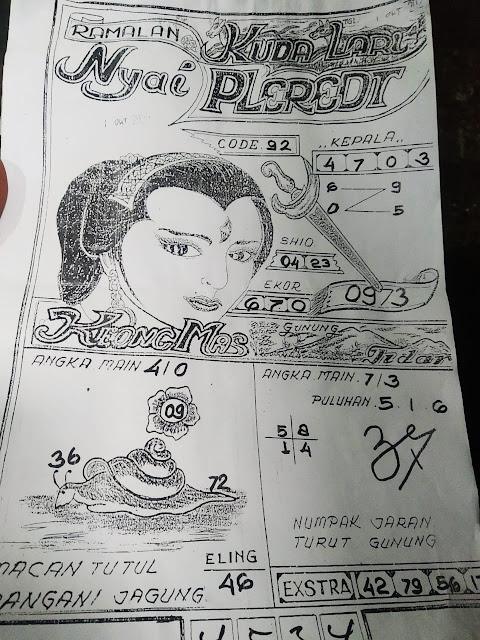 RAMALAN
KUDA LARI
Nyai
PLEREDT
CODE. 92
..KEPALA..
4 7 0 3
6 9
0 5
SHIO
04 23
EKOR
6 7 0
09/3
KHONG MAS
GUNUNG
Tidar
ANGKA MAIN 4/0
09
36
72
MACAN TUTUL
ELING
46
ANGKA. MAIN. 7/3
PULUHAN. 5. 1. 6
5 8
1 4
NUMPAK JARAN
TURUT GUNUNG
EXSTRA 42 79 56 17